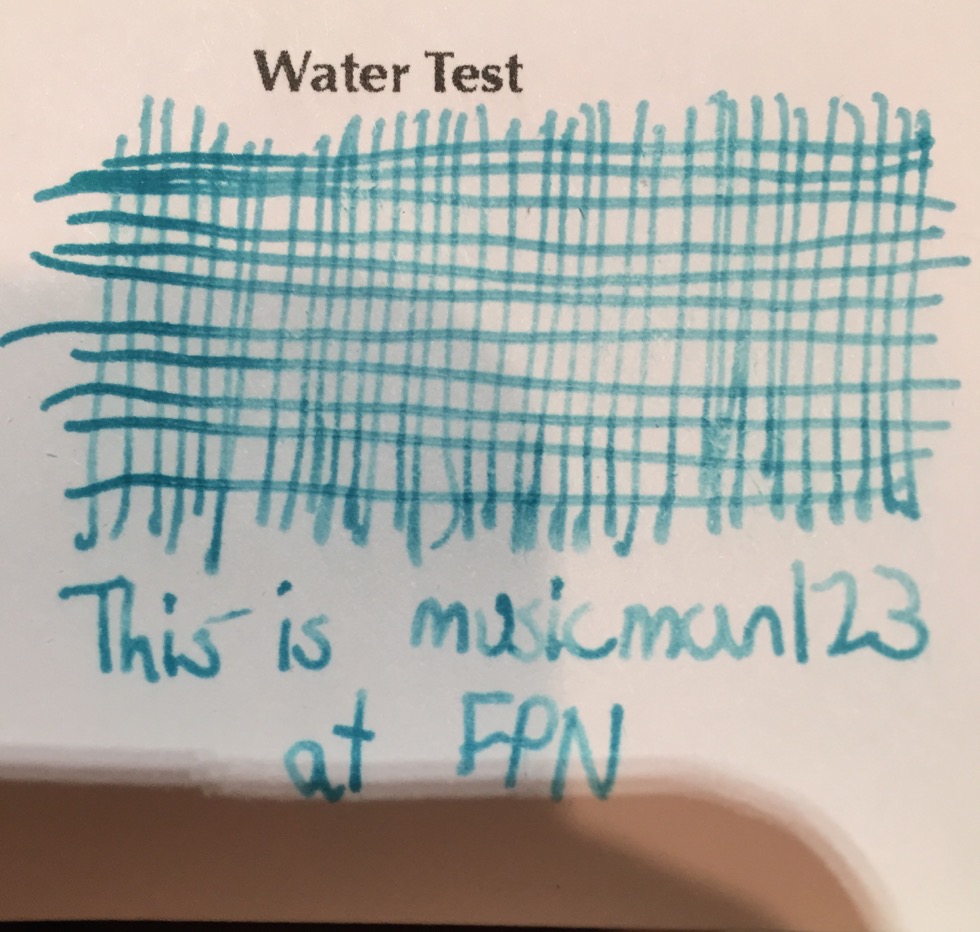 Water Test
This is musicman123
at FPN